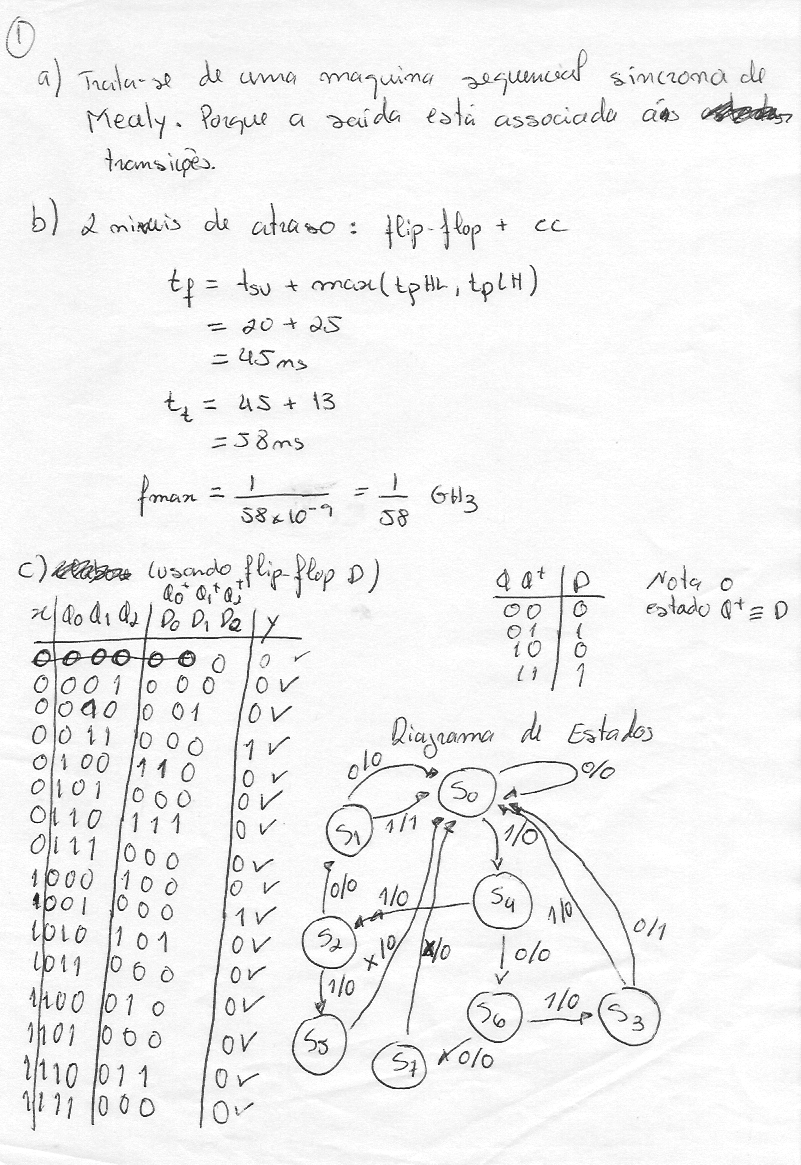 1
a) Trata-se de uma maquina sequencial síncrona de
Mealy. Porque a saída está associada às
transições.
b) 2 niveis de atraso: flip-flop + cc
tf = tsu + max(tpHL, tpLH)
= 20 + 25
= 45 ns
tt = 45 + 13
= 58 ns
fmax = 1 / 58x10^-9 = 1 / 58 GHz
c) (usando flip-flop D)
Q0+ Q1+ Q2+
x | Q0 Q1 Q2 | D0 D1 D2 | y
0 | 0 0 0 | 0 0 0 | 0 ✓
0 | 0 0 1 | 0 0 0 | 0 ✓
0 | 0 1 0 | 0 0 1 | 0 ✓
0 | 0 1 1 | 0 0 0 | 1 ✓
0 | 1 0 0 | 1 1 0 | 0 ✓
0 | 1 0 1 | 0 0 0 | 0 ✓
0 | 1 1 0 | 1 1 1 | 0 ✓
0 | 1 1 1 | 0 0 0 | 0 ✓
1 | 0 0 0 | 1 0 0 | 0 ✓
1 | 0 0 1 | 0 0 0 | 1 ✓
1 | 0 1 0 | 1 0 1 | 0 ✓
1 | 0 1 1 | 0 0 0 | 0 ✓
1 | 1 0 0 | 0 1 0 | 0 ✓
1 | 1 0 1 | 0 0 0 | 0 ✓
1 | 1 1 0 | 0 1 1 | 0 ✓
1 | 1 1 1 | 0 0 0 | 0 ✓
Q Q+ | D
0 0 | 0
0 1 | 1
1 0 | 0
1 1 | 1
Nota o
estado Q+ ≡ D
Diagrama de Estados
0/0
S0
0/0
S1
1/1
1/0
0/0
1/0
S4
1/0
0/1
S2
x/0
x/0
0/0
1/0
S6
1/0
S3
S5
S7
0/0